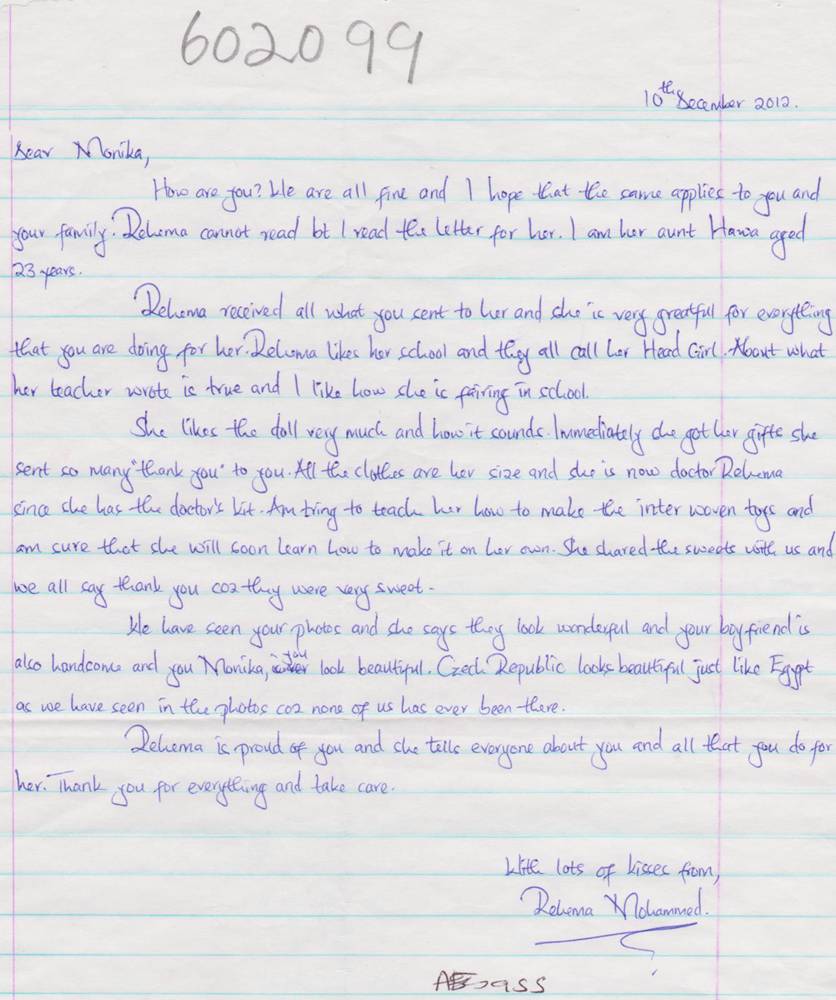 602099
10th December 2012.
Dear Monika,
How are you? We are all fine and I hope that the same applies to you and
your family. Rehema cannot read bt I read the letter for her. I am her aunt Hawa aged
23 years.
Rehema received all what you sent to her and she is very greatful for everything
that you are doing for her. Rehema likes her school and they all call her Head Girl. About what
her teacher wrote is true and I like how she is fairing in school.
She likes the doll very much and how it sounds. Immediately she got her gifts she
sent so many "thank you" to you. All the clothes are her size and she is now doctor Rehema
since she has the doctor's kit. Am tring to teach her how to make the inter woven toys and
am sure that she will soon learn how to make it on her own. She shared the sweets with us and
we all say thank you coz they were very sweet.
We have seen your photos and she says they look wonderful and your boyfriend is
also handsome and you Monika, you look beautiful. Czech Republic looks beautiful just like Egypt
as we have seen in the photos coz none of us has ever been there.
Rehema is proud of you and she tells everyone about you and all that you do for
her. Thank you for everything and take care.
With lots of kisses from,
Rehema Mohammed.